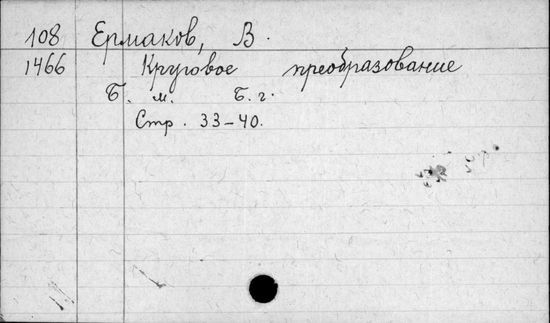 108 Ермаков, В.
1466 Круговое преобразование
Б. м. Б. г.
Стр. 33-40.